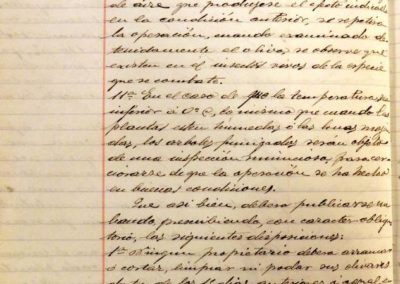 de aire que produjese el efecto indicado
en la condición anterior, se repetirá
la operación, cuando examinado de-
tenidamente el olivo, se observe que
existen en el insectos vivos de la especie
que se combate.
11ª En el caso de que la temperatura sea
inferior á 0º C, lo mismo que cuando las
plantas esten humedas ó las hojas moja-
das, los arboles fumigados serán objeto
de una inspección minuciosa, para cer-
ciorarse de que la operación se ha hecho
en buenas condiciones.
Que asi bien, debera publicarse un
bando, prescribiendo, con caracter obliga-
torio, las siguientes disposiciones:
1ª Ningun propietario debera arrancar
ó cortar, limpiar ni podar sus olivares
dias anteriores á aquel en